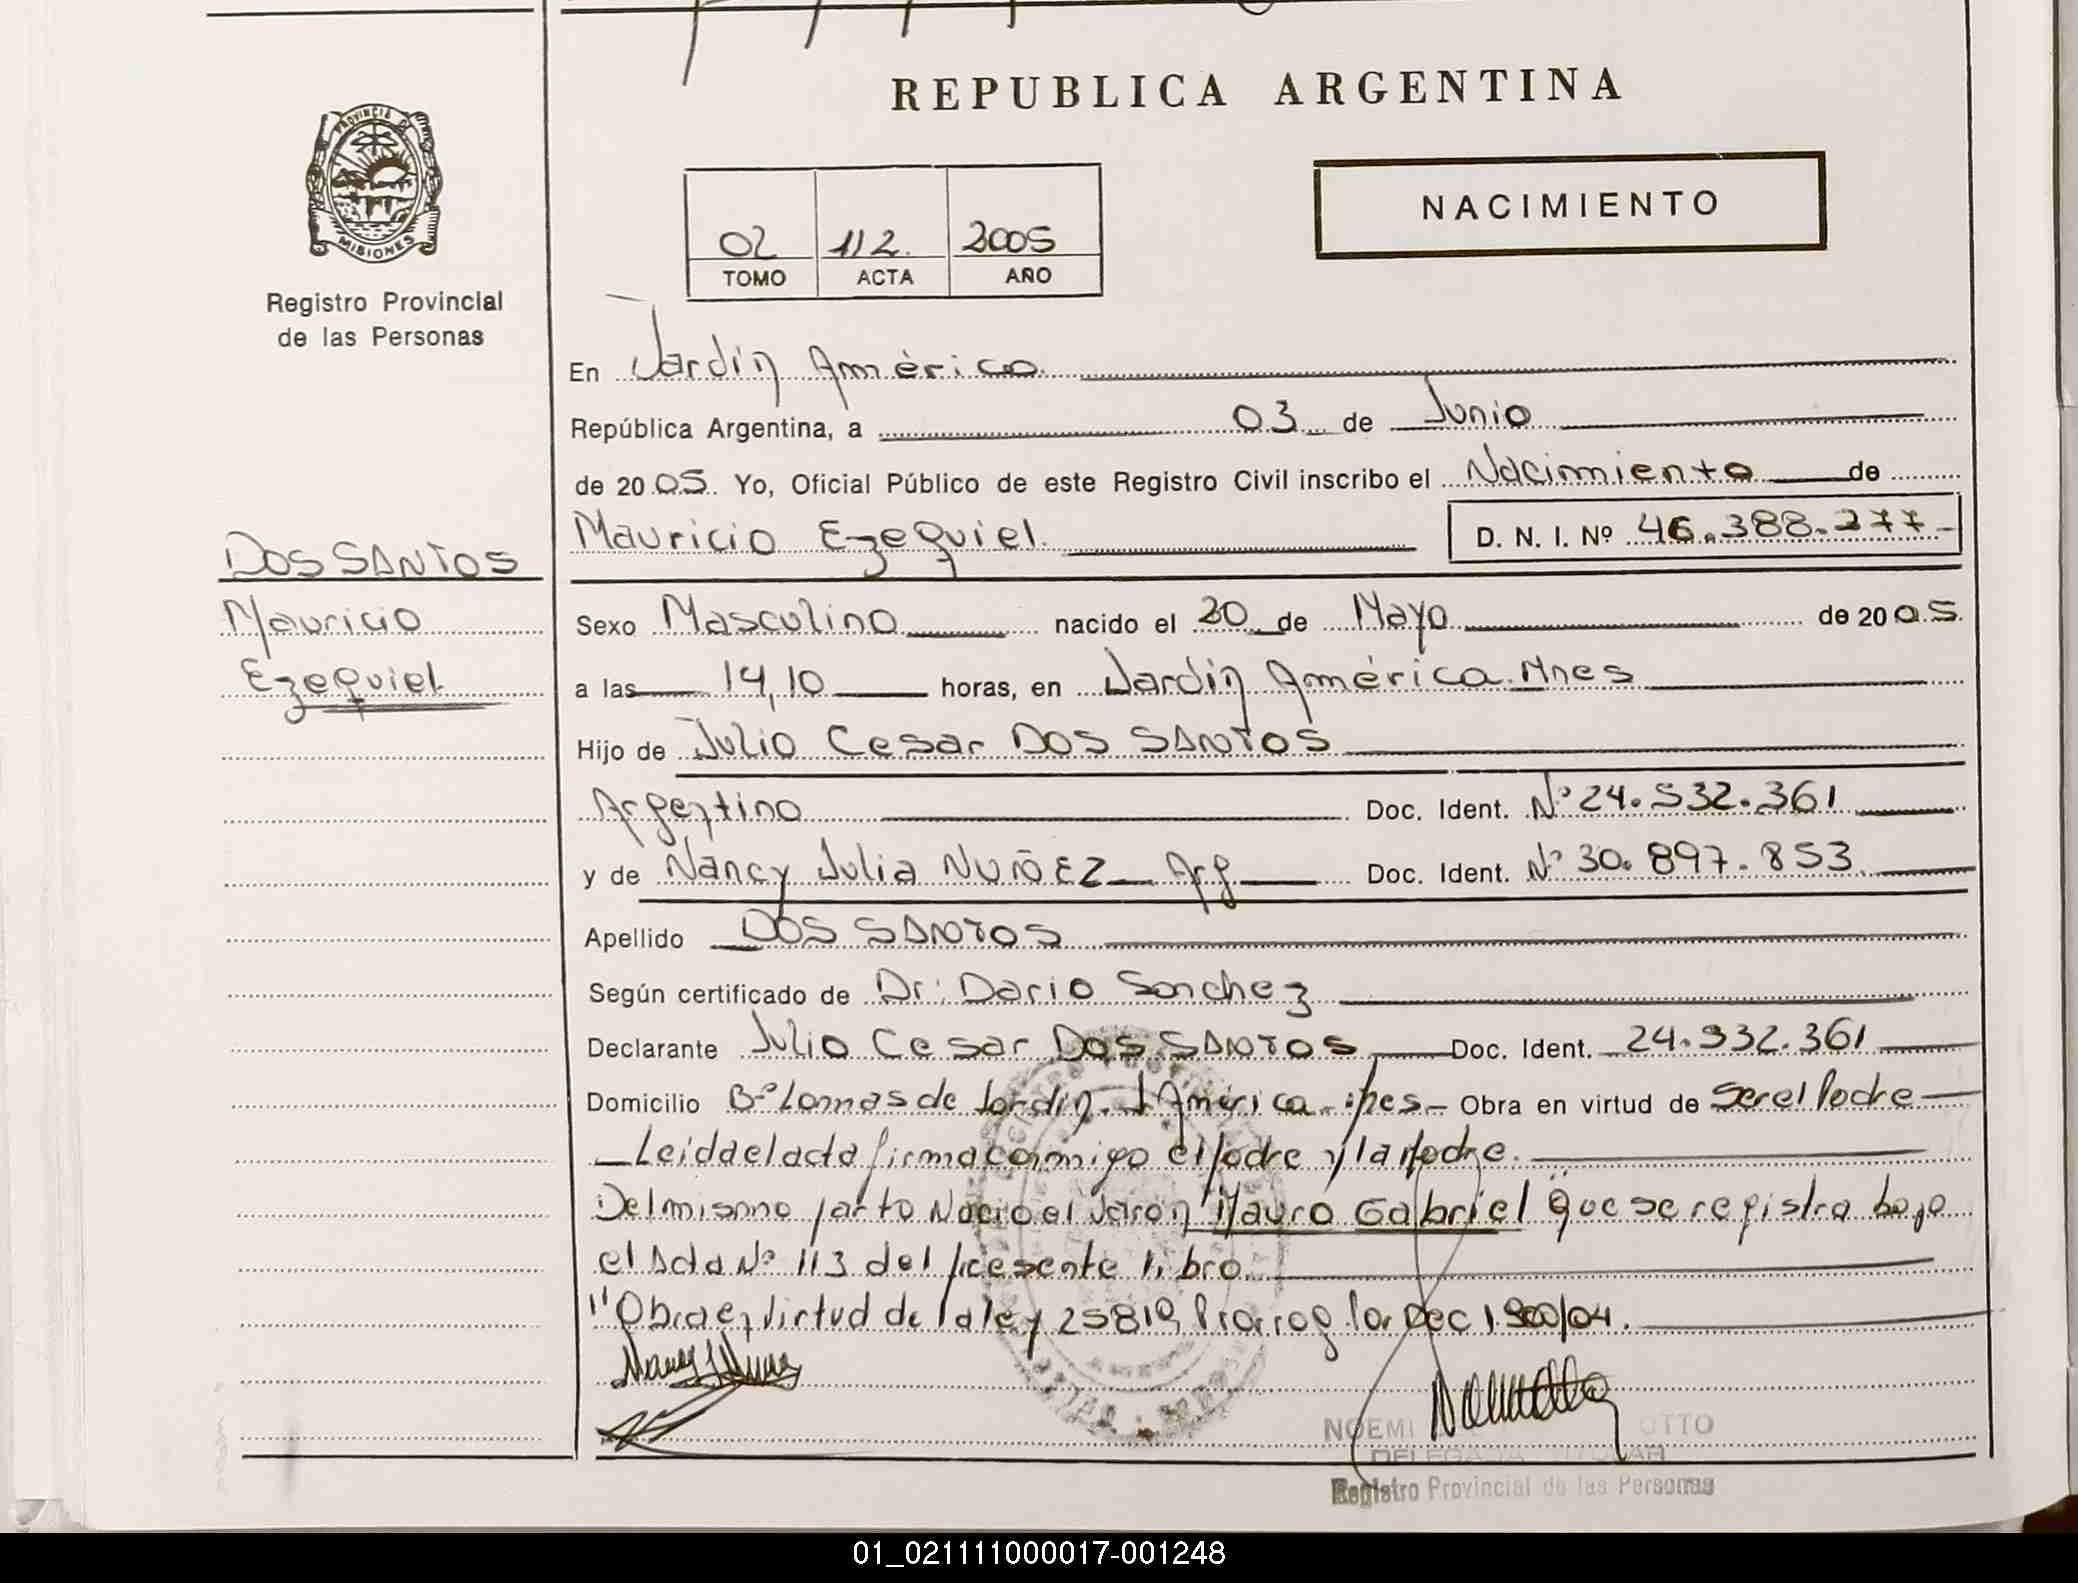 REPUBLICA ARGENTINA
PROVINCIA DE
MISIONES
Registro Provincial
de las Personas
NACIMIENTO
02 112. 2005
TOMO ACTA AÑO
En Jardín América
República Argentina, a 03 de Junio
de 2005. Yo, Oficial Público de este Registro Civil inscribo el Nacimiento de
Mauricio Ezequiel D. N. I. Nº 46.388.277
DOS SANTOS
Mauricio
Ezequiel
Sexo Masculino nacido el 30 de Mayo de 2005
a las 14,10 horas, en Jardín América. Mnes
Hijo de Julio Cesar DOS SANTOS
Argentino Doc. Ident. Nº 24.532.361
y de Nancy Julia NUÑEZ Arg Doc. Ident. Nº 30.897.853
Apellido DOS SANTOS
Según certificado de Dr: Dario Sanchez
Declarante Julio Cesar DOS SANTOS Doc. Ident. 24.532.361
Domicilio Bº Lomas de Jardín. J América - Mnes - Obra en virtud de Ser el Padre
Leida el acta firma conmigo el Padre y la Madre.
Del mismo parto Nacio el varón "Mauro Gabriel" que se registra bajo
el Acta Nº 113 del presente libro.
"Obra en virtud de la ley 25819, Prorrog. por Dec 1.900/04.
NOEMI OTTO
DELEGADA TITULAR
Registro Provincial de las Personas
01_021111000017-001248